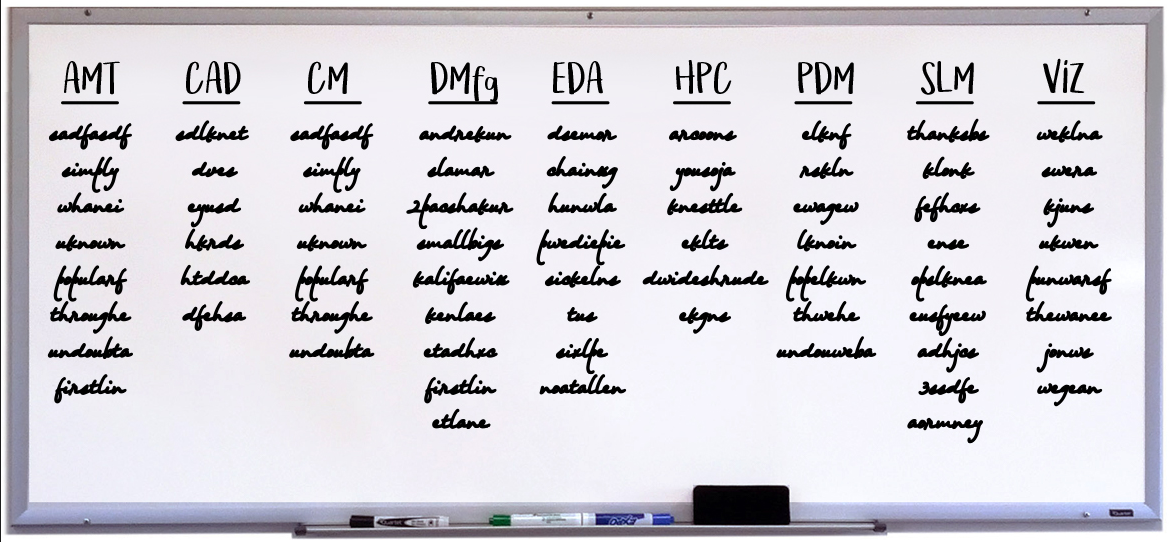 AMT CAD CM DMfg EDA HPC PDM SLM ViZ
sadfasdf sdlknet sadfasdf andrekun dsemor arcoons elknf thanksbs weklna
simply dves simply slamar chainxg yousoja rskln klonk swera
whanei eyusd whanei 2pacshakur hunwla knesttle ewagew fefhcxs kjuns
uknown hkrds uknown smallbigs pwediepie eklts lknoin ense ukwen
popularf htddca popularf kalifaewix sickelns dwideshrude popelkwn opslknea punwarsf
throughe dfehsa throughe kenlaes tus ekgns thwehe eusfyeew thewanee
undoubta undoubta etadhxc sixlpe undouweba adhjcs jonws
firstlin firstlin noatallen 3ssdfe wegean
etlane aormney
Quartet